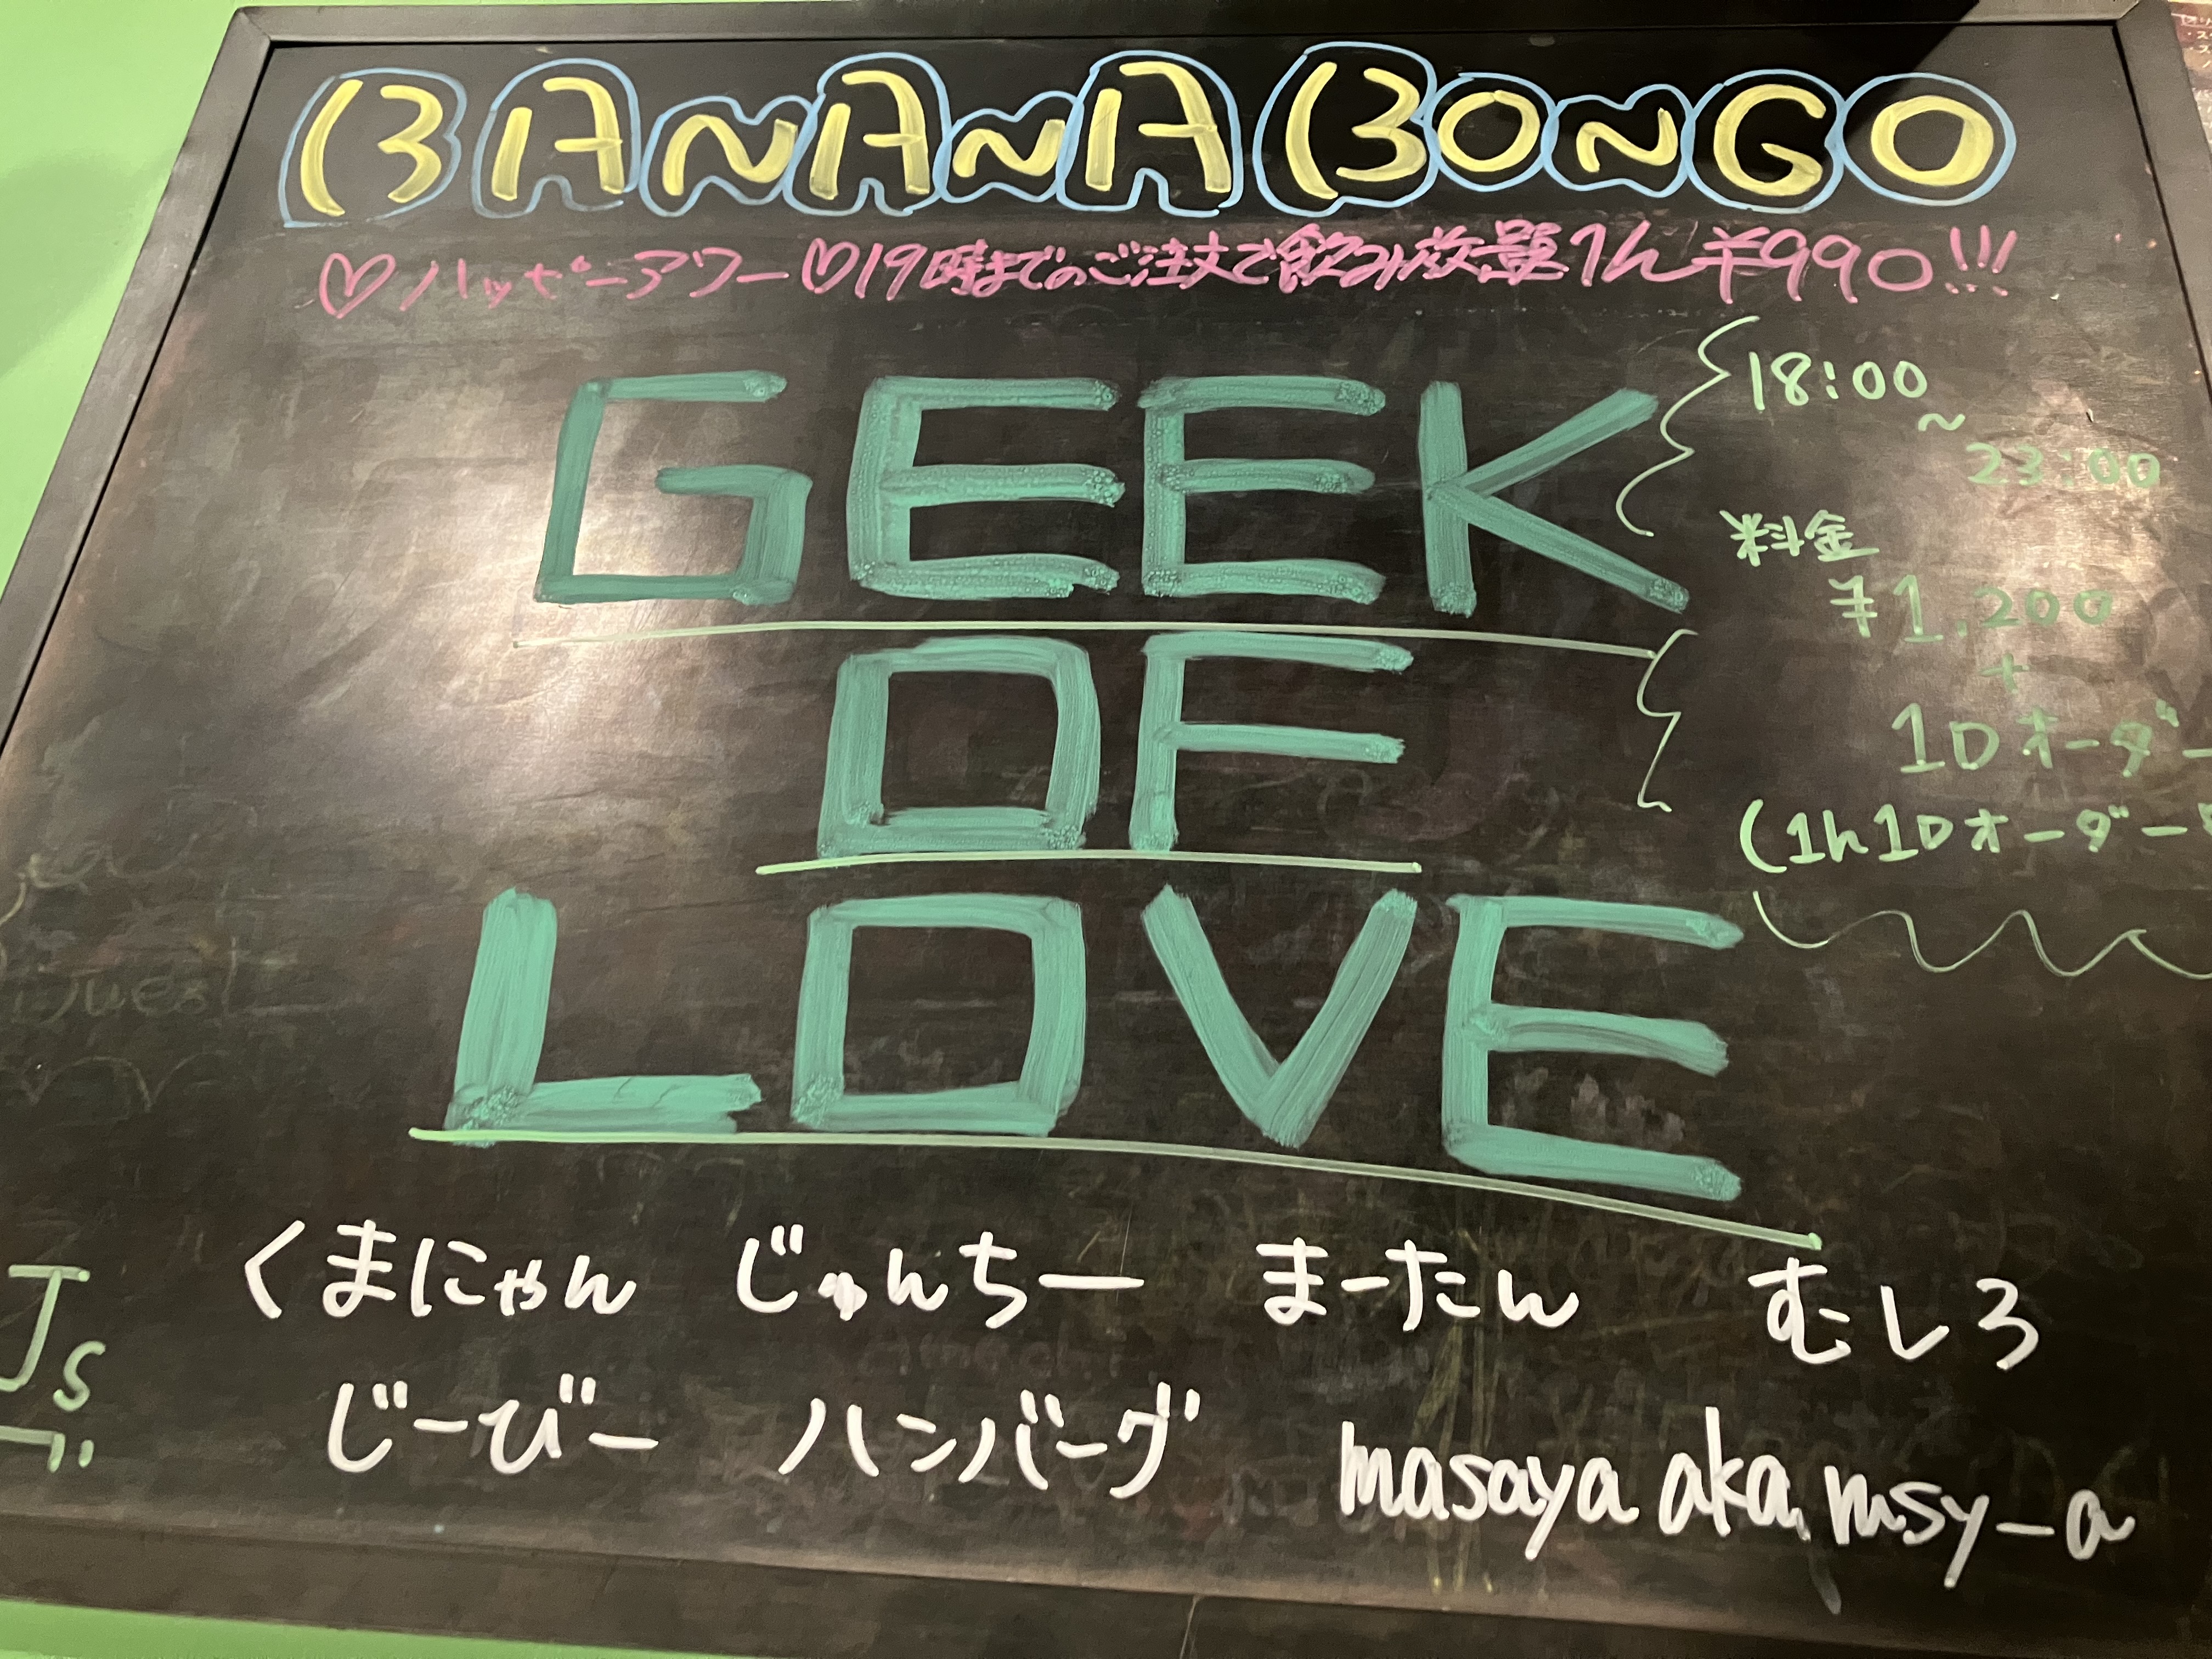 BANANA BONGO
♡ハッピーアワー♡19時までのご注文で飲み放題1h¥990!!!
GEEK
OF
LOVE
18:00
~
23:00
料金
¥1,200
+
1Dオーダー
(1h1Dオーダー
くまにゃん じゅんちー まーたん むしろ
じーびー ハンバーグ masaya aka. msy_a
Js